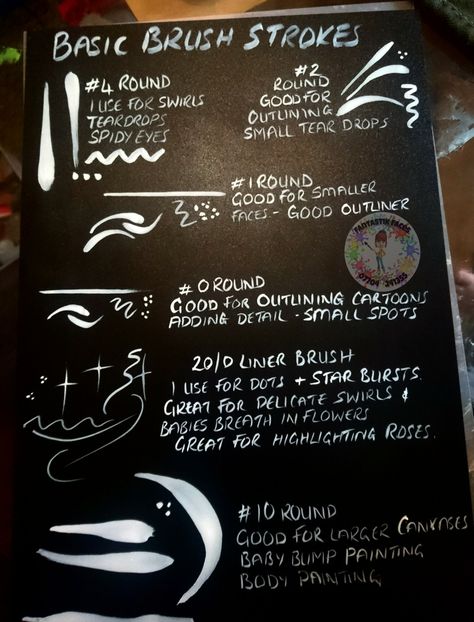 BASIC BRUSH STROKES
#4 ROUND
I USE FOR SWIRLS
TEARDROPS
SPIDY EYES
#2
ROUND
GOOD FOR
OUTLINING
SMALL TEAR DROPS
#1 ROUND
GOOD FOR SMALLER
FACES - GOOD OUTLINER
FANTASTIK FACES
#0 ROUND
GOOD FOR OUTLINING CARTOONS
ADDING DETAIL - SMALL SPOTS
20/0 LINER BRUSH
I USE FOR DOTS + STAR BURSTS.
GREAT FOR DELICATE SWIRLS &
BABIES BREATH IN FLOWERS
GREAT FOR HIGHLIGHTING ROSES.
#10 ROUND
GOOD FOR LARGER CANVASES
BABY BUMP PAINTING
BODY PAINTING